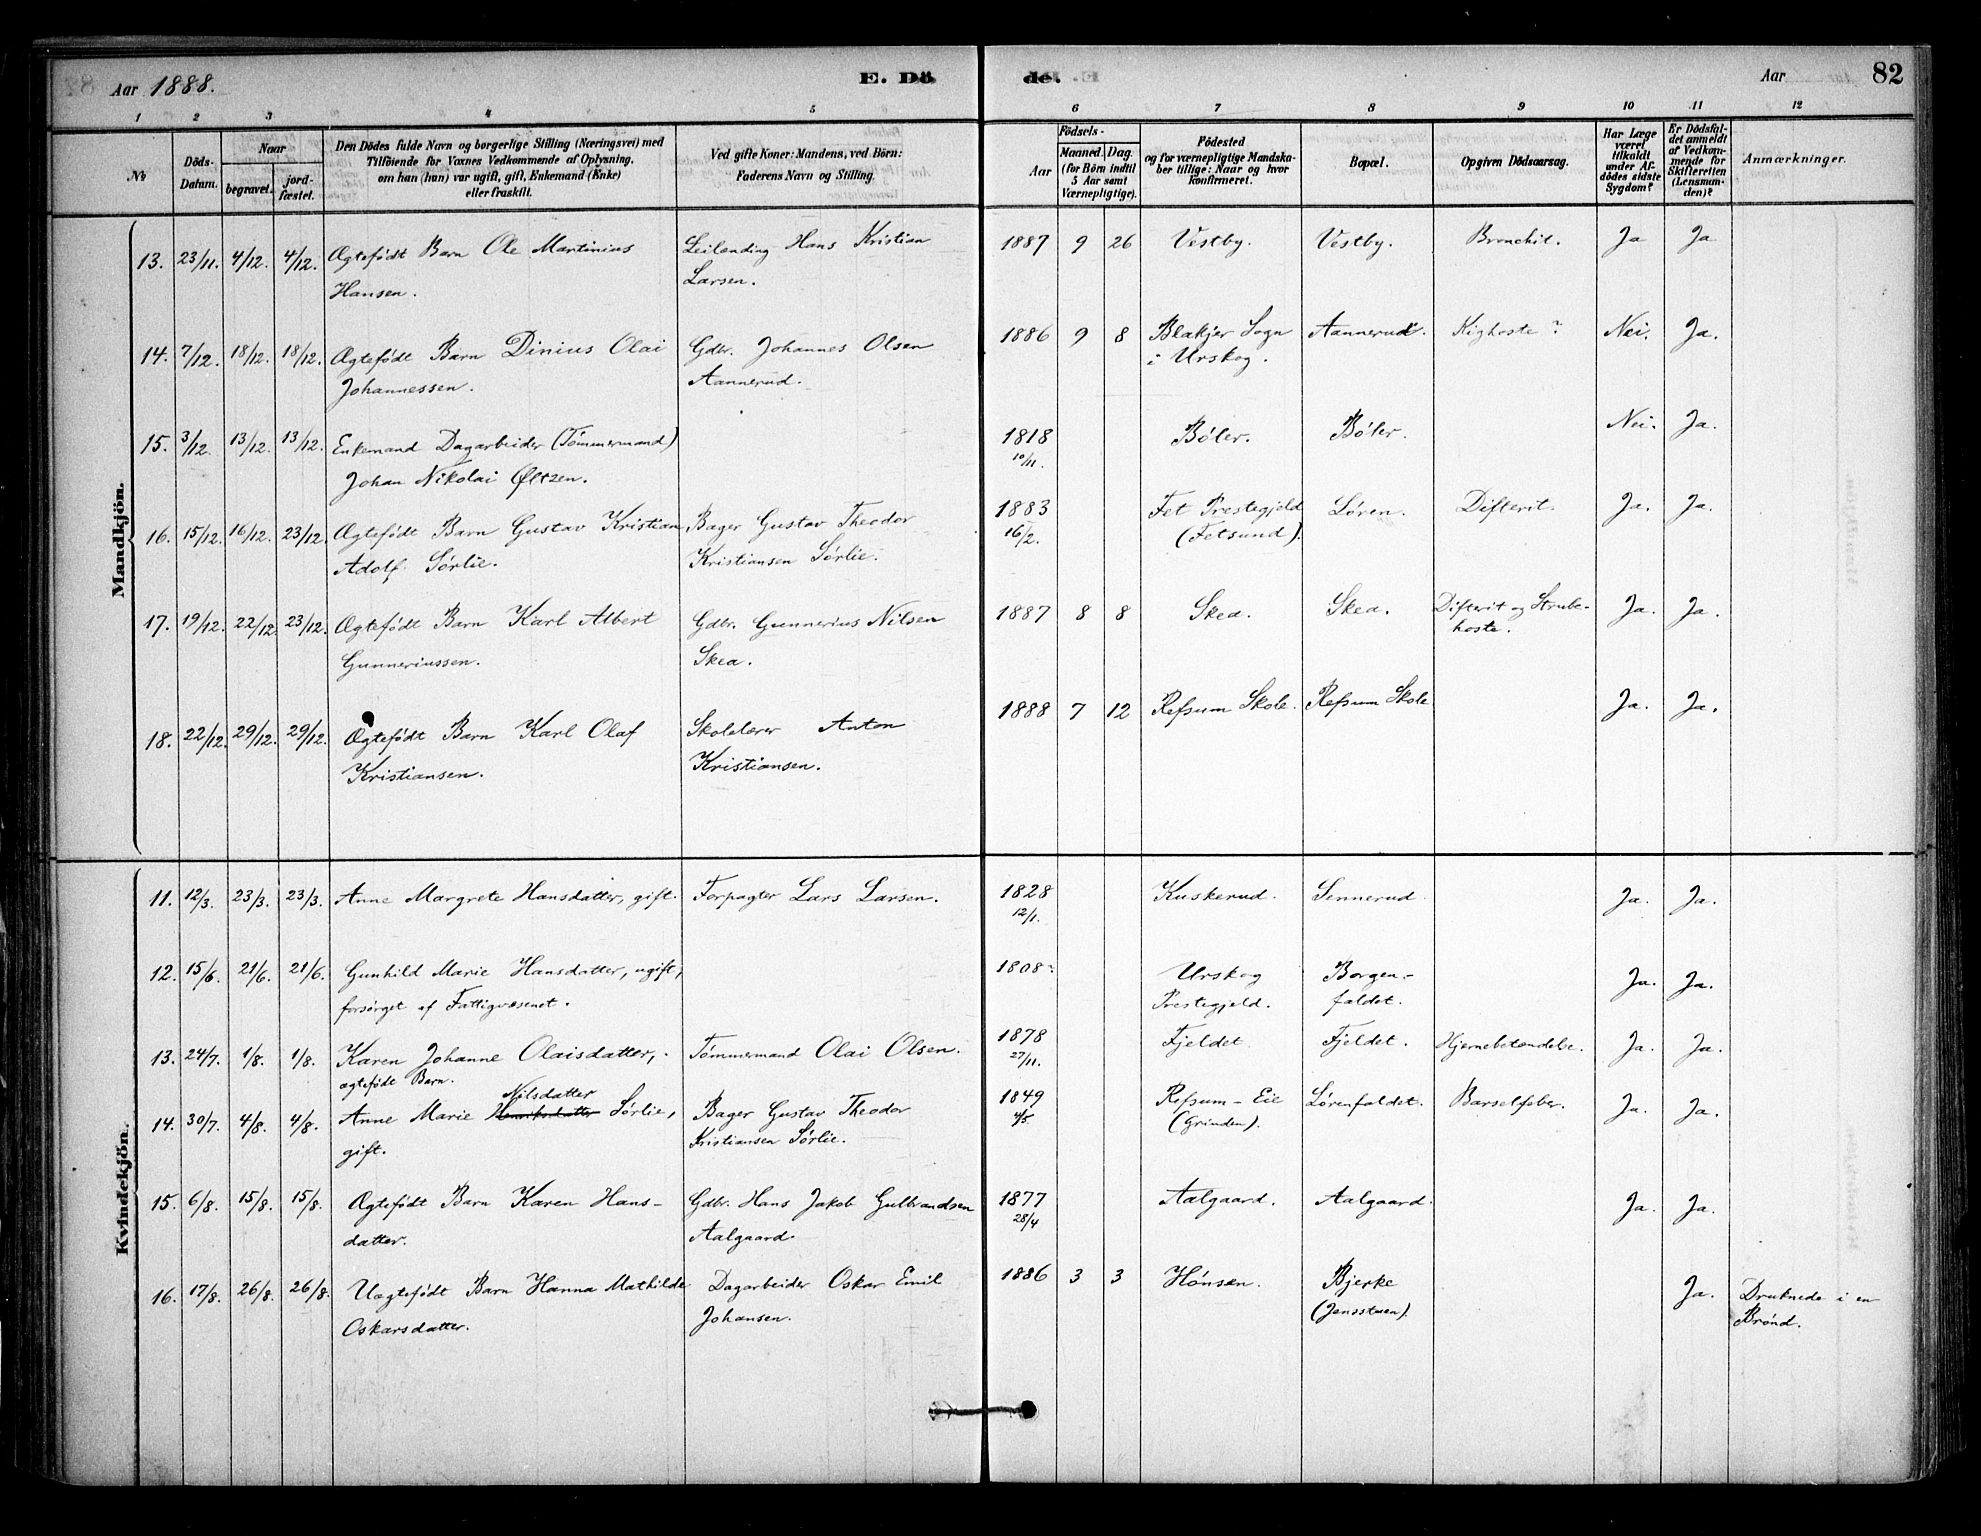 Aar 1888. E. Dö de. Aar 82
1 2 3 4 5 6 7 8 9 10 11 12
No
Döds-Datum.
Naar
begravet.
jordfæstet.
Den Dödes fulde Navn og borgerlige Stilling (Næringsvei) med
Tilföiende for Voxnes Vedkommende af Oplysning,
om han (hun) var ugift, gift, Enkemand (Enke)
eller fraskilt.
Ved gifte Koner: Mandens, ved Börn:
Faderens Navn og Stilling.
Födsels-
Aar
Maaned. Dag.
(for Börn indtil
5 Aar samt
Værnepligtige).
Födested
og for værnepligtige Mandskaber
tillige: Naar og hvor
konfirmeret.
Bopæl.
Opgiven Dödsaarsag.
Har Læge
været
tilkaldt
under Afdödes
sidste
Sygdom?
Er Dödsfaldet
anmeldt
af Vedkommende
for
Skifteretten
(Lensmanden)?
Anmærkninger.
Mandkjön.
13. 23/11. 4/12. 4/12. Ægtefödt Barn Ole Martinius Leilending Hans Kristian 1887 9 26 Vestby. Vestby. Bronchit. Ja Ja
Hansen. Larsen.
14. 7/12. 18/12. 18/12. Ægtefödt Barn Dinius Olai Gdbr. Johannes Olsen 1886 9 8 Blakjer Sogn Aannerud. Kighoste? Nei. Ja.
Johannessen. Aannerud. i Urskog.
15. 3/12. 13/12. 13/12. Enkemand Dagarbeider (Tømmermand) 1818 Bøler. Bøler. Nei. Ja.
Johan Nikolai Øltzen. 10/11.
16. 15/12. 16/12. 23/12. Ægtefödt Barn Gustav Kristian Bager Gustav Theodor 1883 Fet Prestegjeld Løren. Difterit. Ja. Ja.
Adolf Sørlie. Kristiansen Sørlie. 16/2. (Fetsund).
17. 19/12. 22/12. 23/12. Ægtefödt Barn Karl Albert Gdbr. Gunnerius Nilsen 1887 8 8 Skea. Skea. Difterit og Strube- Ja. Ja.
Gunneriussen. Skea. hoste.
18. 22/12. 29/12. 29/12. Ægtefödt Barn Karl Olaf Skolelærer Anton 1888 7 12 Refsum Skole. Refsum Skole Ja. Ja.
Kristiansen. Kristiansen.
Kvindekjön.
11. 12/3. 23/3. 23/3. Anne Margrete Hansdatter, gift. Forpagter Lars Larsen. 1828 Kuskerud. Sennerud. Ja. Ja.
12/1.
12. 15/6. 21/6. 21/6. Gunhild Marie Hansdatter, ugift, 1808. Urskog Borgen- Ja. Ja.
forsørget af Fattigvæsenet. Prestegjeld. faldet.
13. 24/7. 1/8. 1/8. Karen Johanne Olaisdatter, Tømmermand Olai Olsen. 1878 Fjeldet. Fjeldet. Hjernebetændelse. Ja. Ja.
ægtefödt Barn. 27/11.
Nilsdatter
14. 30/7. 4/8. 4/8. Anne Marie Henriksdatter Sørlie, Bager Gustav Theodor 1849 Refsum-Eie Lørenfaldet. Barselfeber. Ja. Ja.
gift. Kristiansen Sørlie. 4/5. (Grinden).
15. 6/8. 15/8. 15/8. Ægtefödt Barn Karen Hans- Gdbr. Hans Jakob Gulbrandsen 1877 Aalgaard. Aalgaard. Ja. Ja.
datter. Aalgaard. 28/4
16. 17/8. 26/8. 26/8. Uægtefödt Barn Hanna Mathilde Dagarbeider Oskar Emil 1886 3 3 Hønsen. Bjerke Ja. Druknede i en
Oskarsdatter. Johansen. (Jensstuen). Brønd.